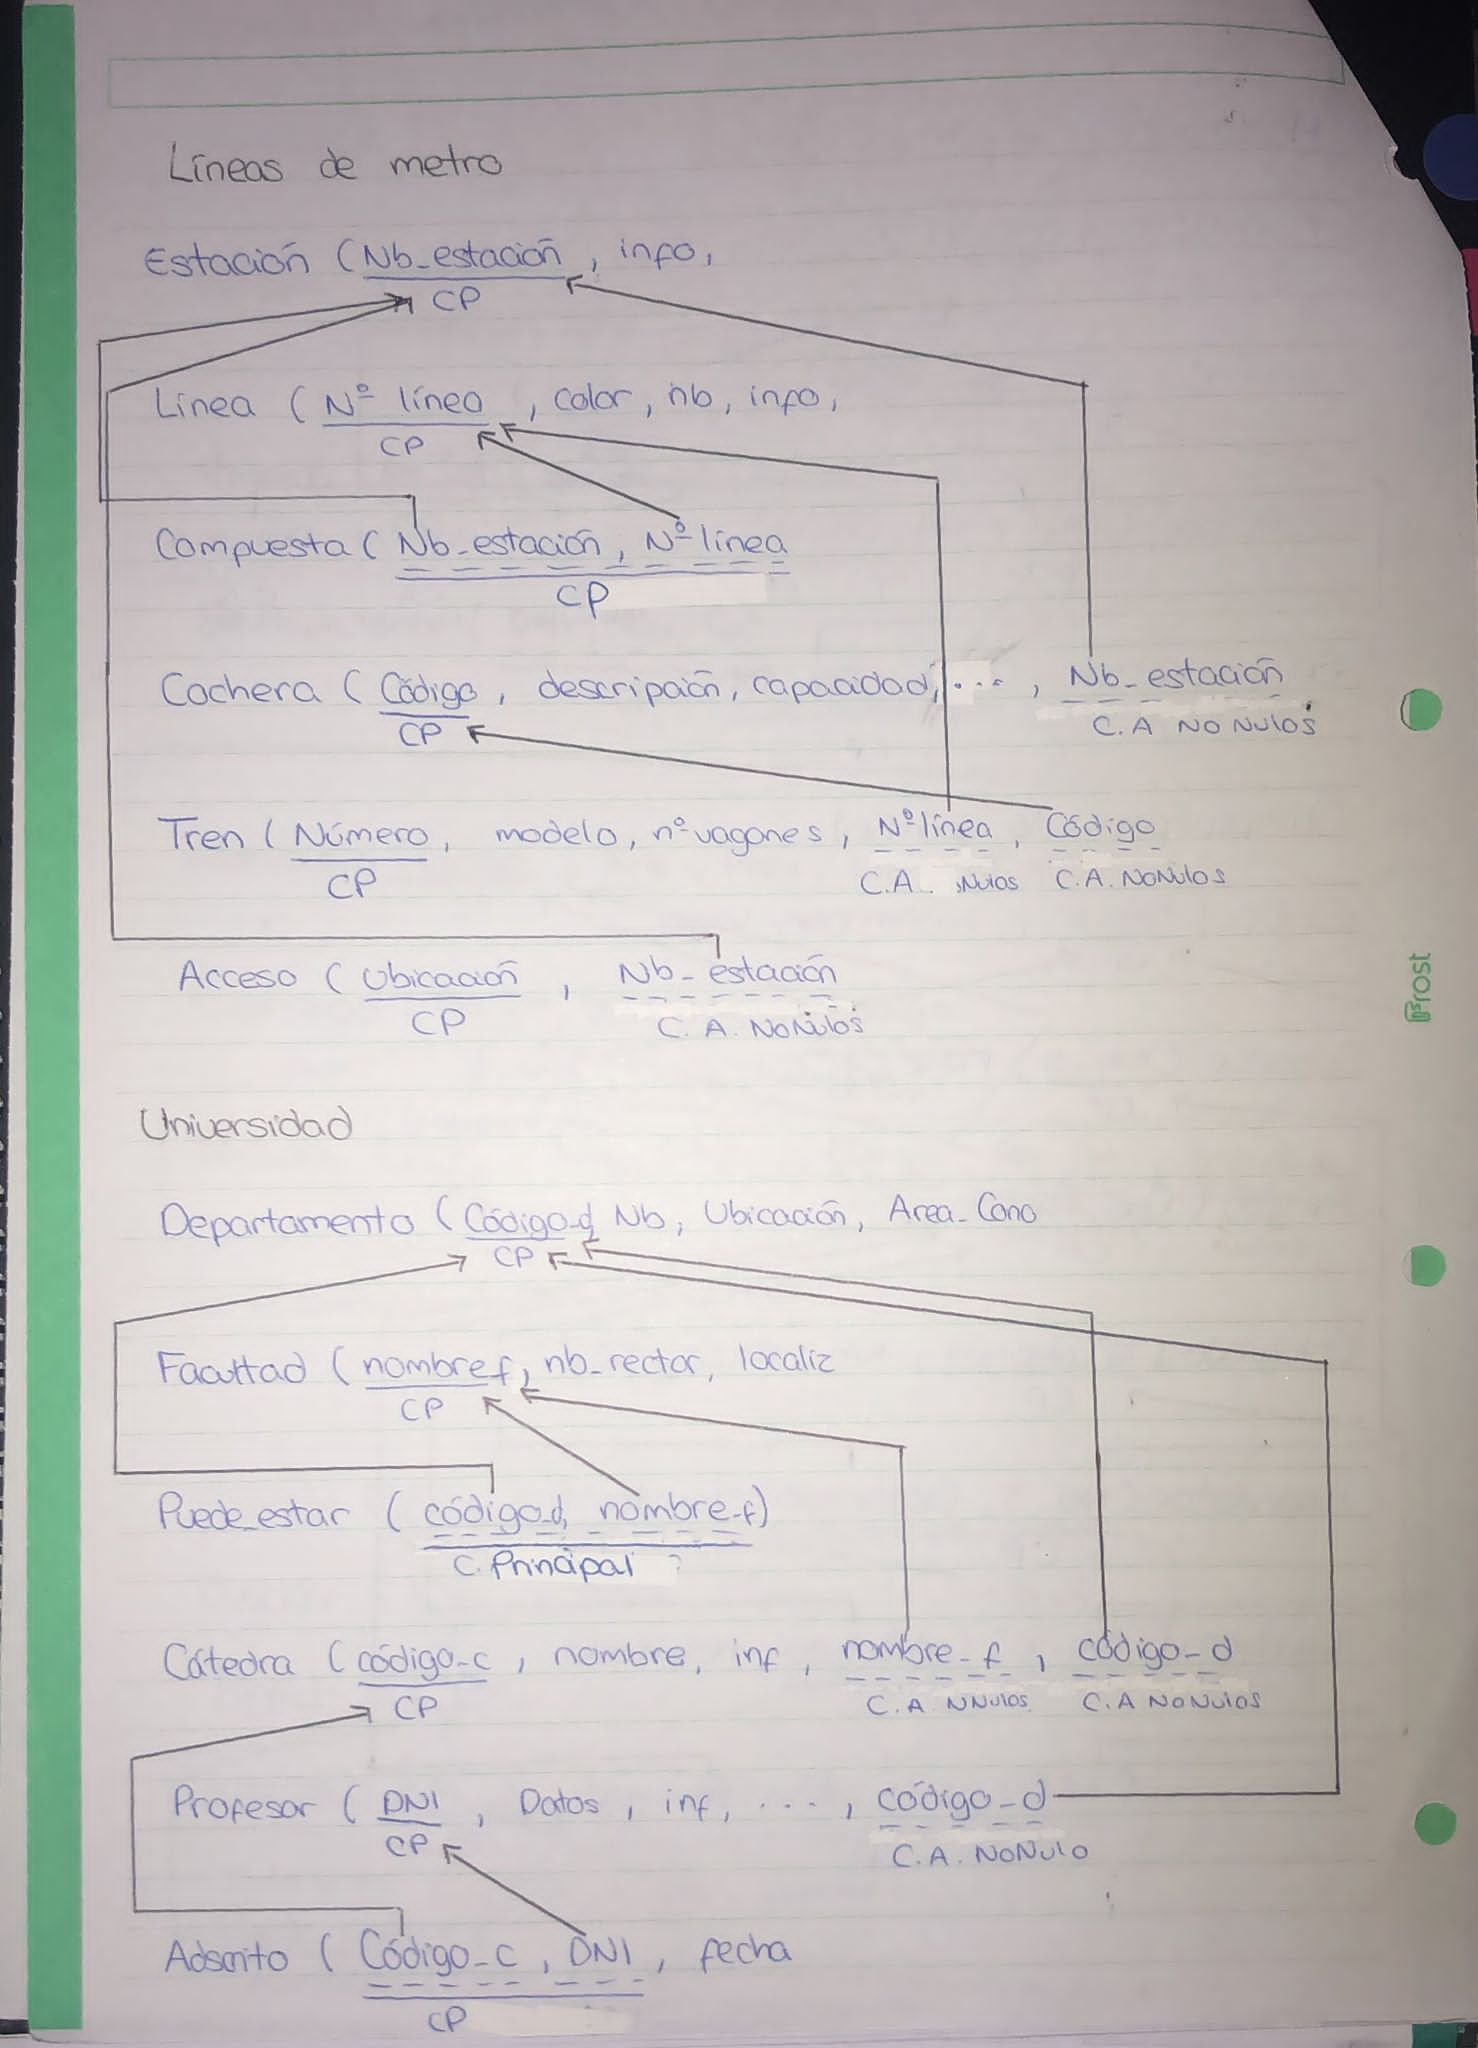 Líneas de metro
Estación (Nb_estación, info,
CP
Línea (Nº línea, color, nb, info,
CP
Compuesta (Nb_estación, Nº línea
CP
Cochera (Código, descripción, capacidad, ..., Nb_estación
CP C.A NO NULOS
Tren (Número, modelo, nº vagones, Nº línea, Código
CP C.A. Nulos C.A. NoNulos
Acceso (Ubicación, Nb_estación
CP C.A. NoNulos
Frost
Universidad
Departamento (Código_d, Nb, Ubicación, Area_Cono
CP
Facultad (nombre_f, nb_rector, localiz
CP
Puede_estar (código_d, nombre_f)
C. Principal
Cátedra (código_c, nombre, inf, nombre_f, código_d
CP C.A NNulos C.A NoNulos
Profesor (DNI, Datos, inf, ..., código_d
CP C.A. NoNulo
Adscrito (Código_c, DNI, fecha
CP